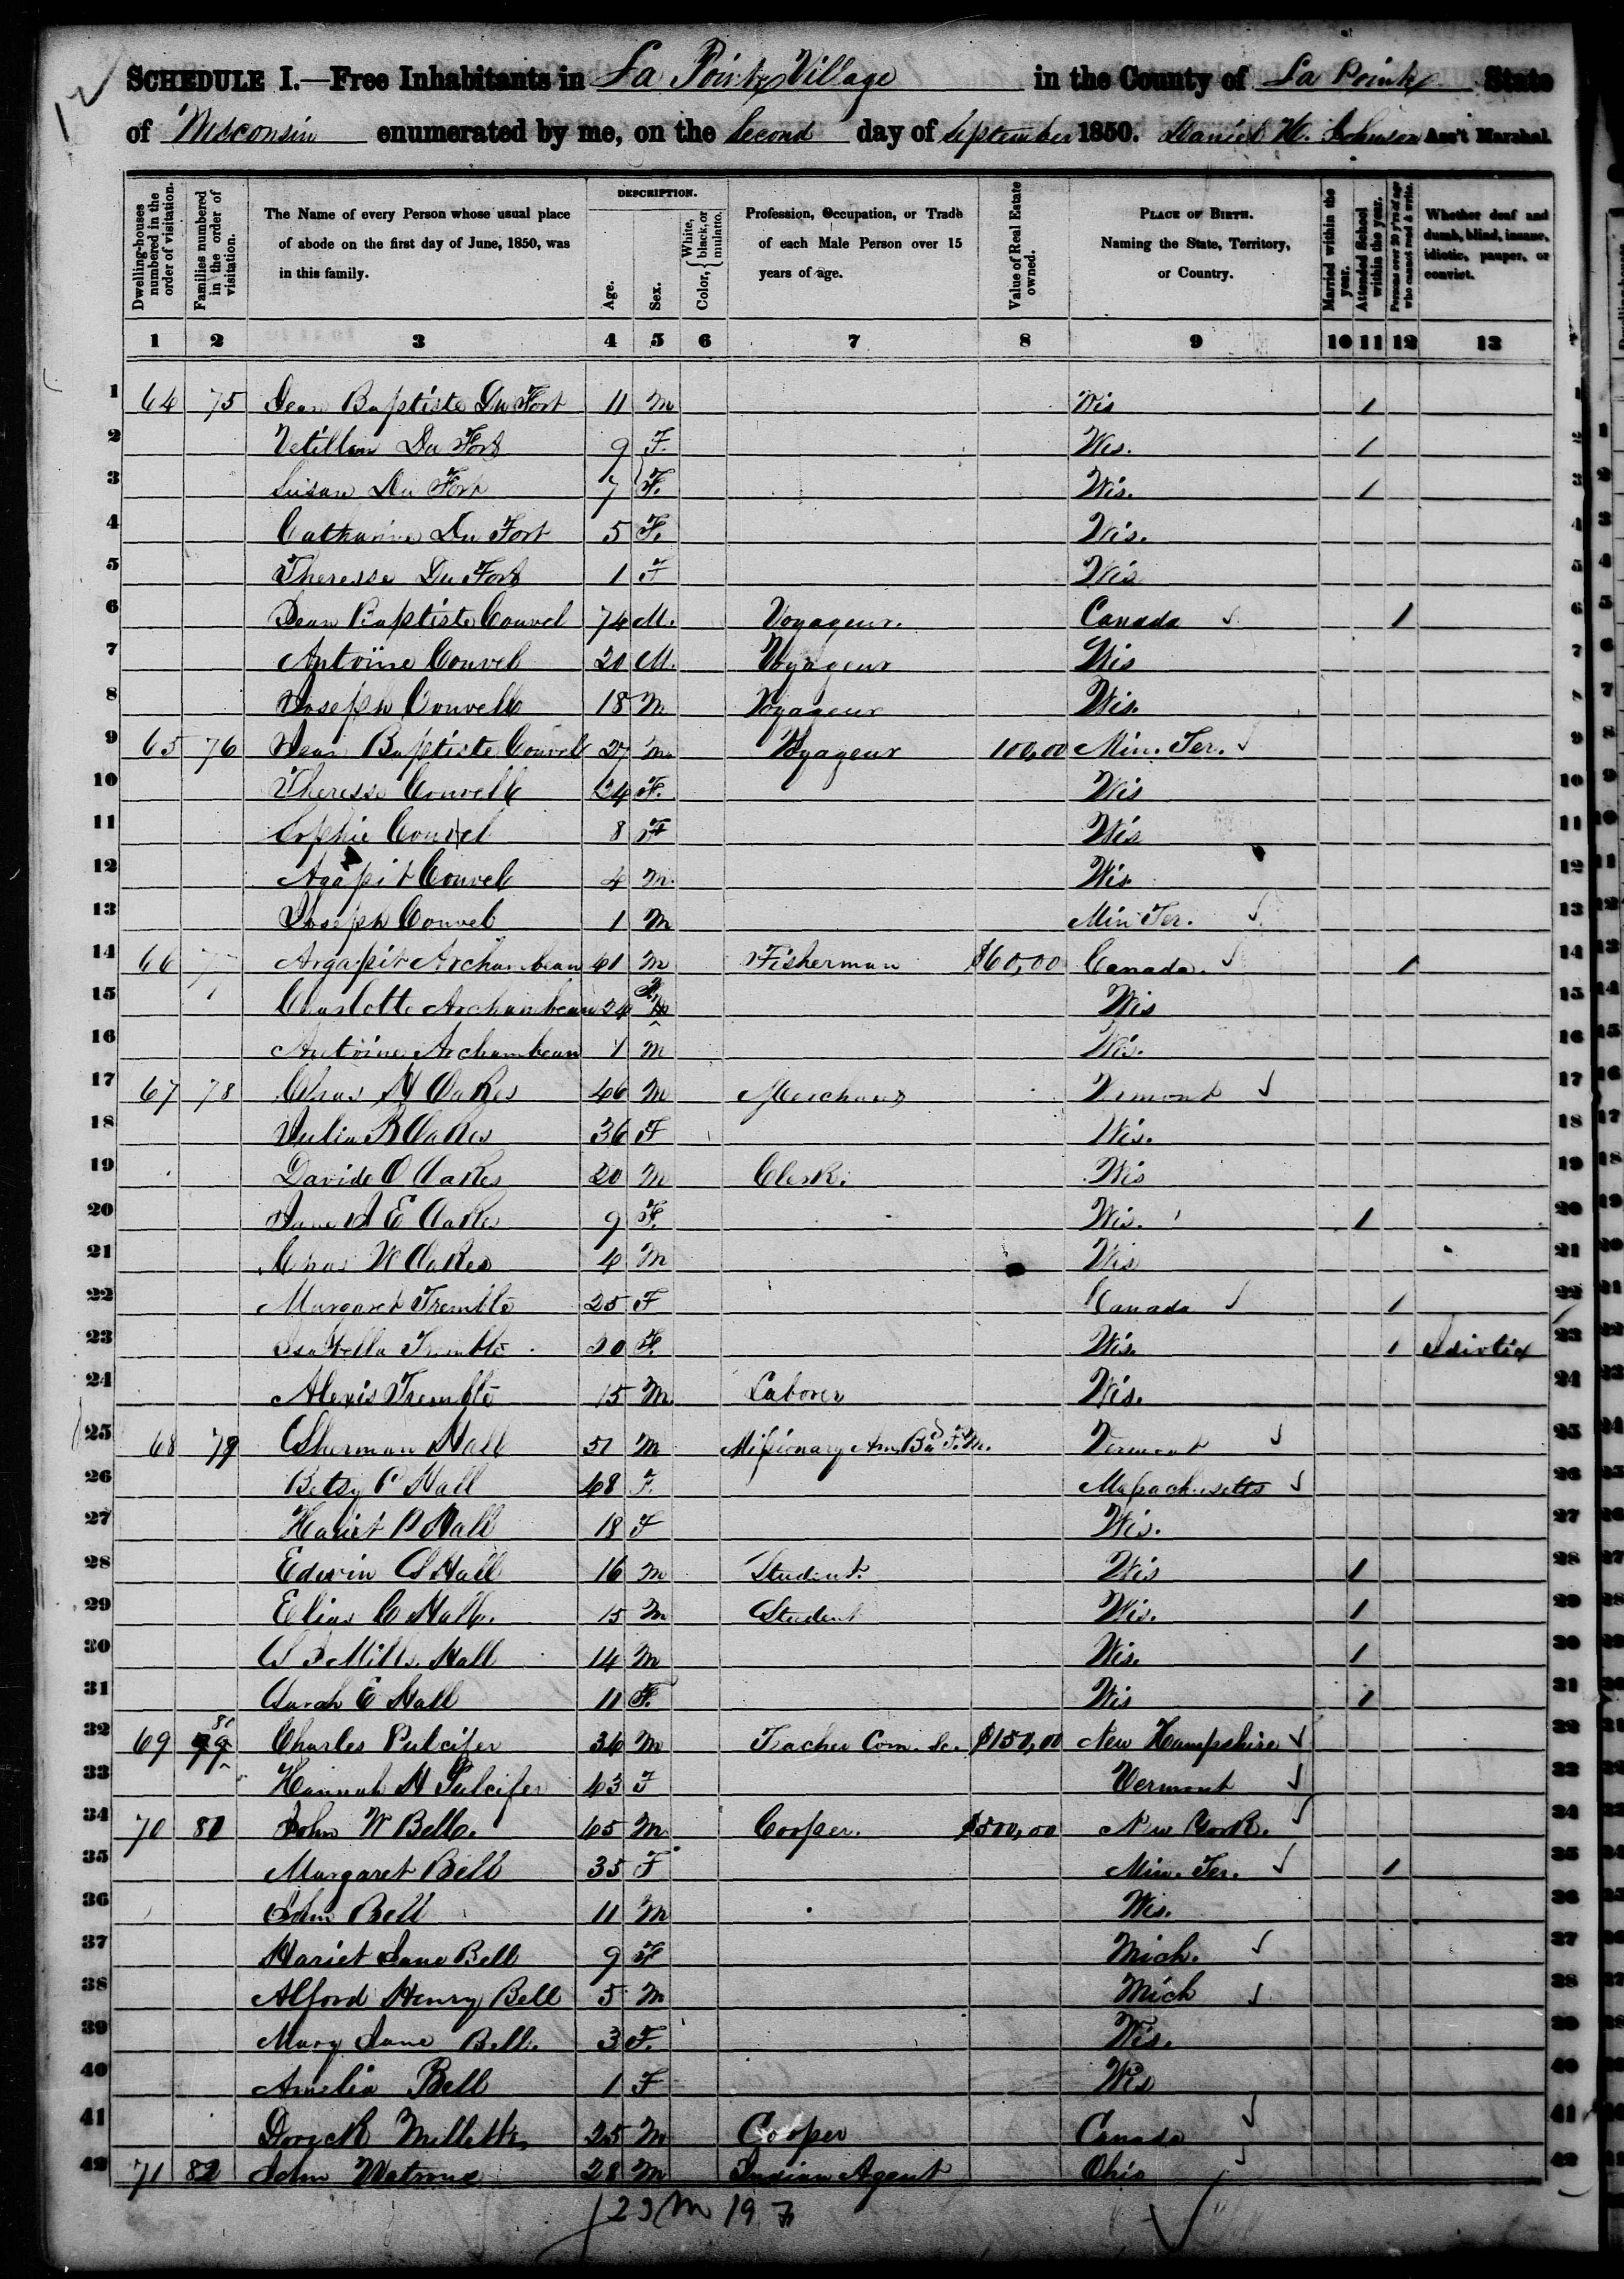 SCHEDULE I.—Free Inhabitants in La Pointe Village in the County of La Pointe State
of Wisconsin enumerated by me, on the Second day of September 1850. Daniel H. Johnson Ass't Marshal.
Dwelling-houses numbered in the order of visitation.
Families numbered in the order of visitation.
The Name of every Person whose usual place of abode on the first day of June, 1850, was in this family.
DESCRIPTION.
Age.
Sex.
Color, { White, black, or mulatto.
Profession, Occupation, or Trade of each Male Person over 15 years of age.
Value of Real Estate owned.
PLACE OF BIRTH. Naming the State, Territory, or Country.
Married within the year.
Attended School within the year.
Persons over 20 y'rs of age who cannot read & write.
Whether deaf and dumb, blind, insane, idiotic, pauper, or convict.
1 2 3 4 5 6 7 8 9 10 11 12 13
1 64 75 Jean Baptiste Du Fort 11 M Wis 1 1
2 Du Fort 9 F. Wis. 1 2
3 Susan Du Fort 7 F. Wis. 1 3
4 Catharine Du Fort 5 F. Wis. 4
5 Theresse Du Fort 1 F Wis 5
6 Jean Baptiste Couvel 74 M. Voyageur. Canada ✓ 1 6
7 Antoine Couvel 20 M. Voyageur Wis 7
8 Joseph Couvell 18 M Voyageur Wis. 8
9 65 76 Jean Baptiste Couvell 27 M. Voyageur 100,00 Min. Ter. ✓ 9
10 Theresse Couvell 24 F. Wis 10
11 Sophie Couvel 8 F Wis 11
12 Agapit Couvel 4 M. Wis. 12
13 Joseph Couvel 1 M Min Ter. ✓ 13
14 66 Argapit Archambeau 41 M Fisherman $60,00 Canada. ✓ 1 14
15 Charlotte Archambeau 24 F. Wis 15
16 Antoine Archambeau 1 M Wis. 16
17 67 78 Chas H Oakes 46 M Merchant Vermont ✓ 17
18 Julia B Oakes 36 F Wis. 18
19 Davide O Oakes 20 M Clerk. Wis 19
20 Jane E Oakes 9 F. Wis. 1 20
21 Chas W Oakes 4 M Wis 21
22 Margaret Tremble 25 F Canada ✓ 1 22
23 Isabella Tremble 20 F. Wis. 1 Idiotic 23
24 Alexis Tremble 15 M. Laborer Wis. 24
25 68 79 Sherman Hall 51 M Missionary Am. Bd. F. M. Vermont ✓ 25
26 Betsy P Hall 48 F. Massachusetts ✓ 26
27 Hariet P Hall 18 F Wis. 27
28 Edwin S Hall 16 M Student. Wis 1 28
29 Elias C Hall. 15 M Student Wis. 1 29
30 S J Mills Hall 14 M Wis. 1 30
31 Sarah E Hall 11 F. Wis 1 31
32 69 Charles Pulcifer 36 M Teacher Com. Sc. $150,00 New Hampshire ✓ 32
33 Hannah H Pulcifer 43 F Vermont ✓ 33
34 70 81 John W Bell. 45 M Cooper. $500,00 New York. ✓ 34
35 Margaret Bell 35 F Min. Ter. ✓ 1 35
36 John Bell 11 M Wis. 36
37 Hariet Jane Bell 9 F Mich. ✓ 37
38 Alford Henry Bell 5 M Mich ✓ 38
39 Mary Jane Bell. 3 F. Wis. 39
40 Amelia Bell 1 F Wis 40
41 25 M Cooper Canada ✓ 41
42 71 82 John Watrous 28 M Indian Agent Ohio ✓ 42
23 M 19 F